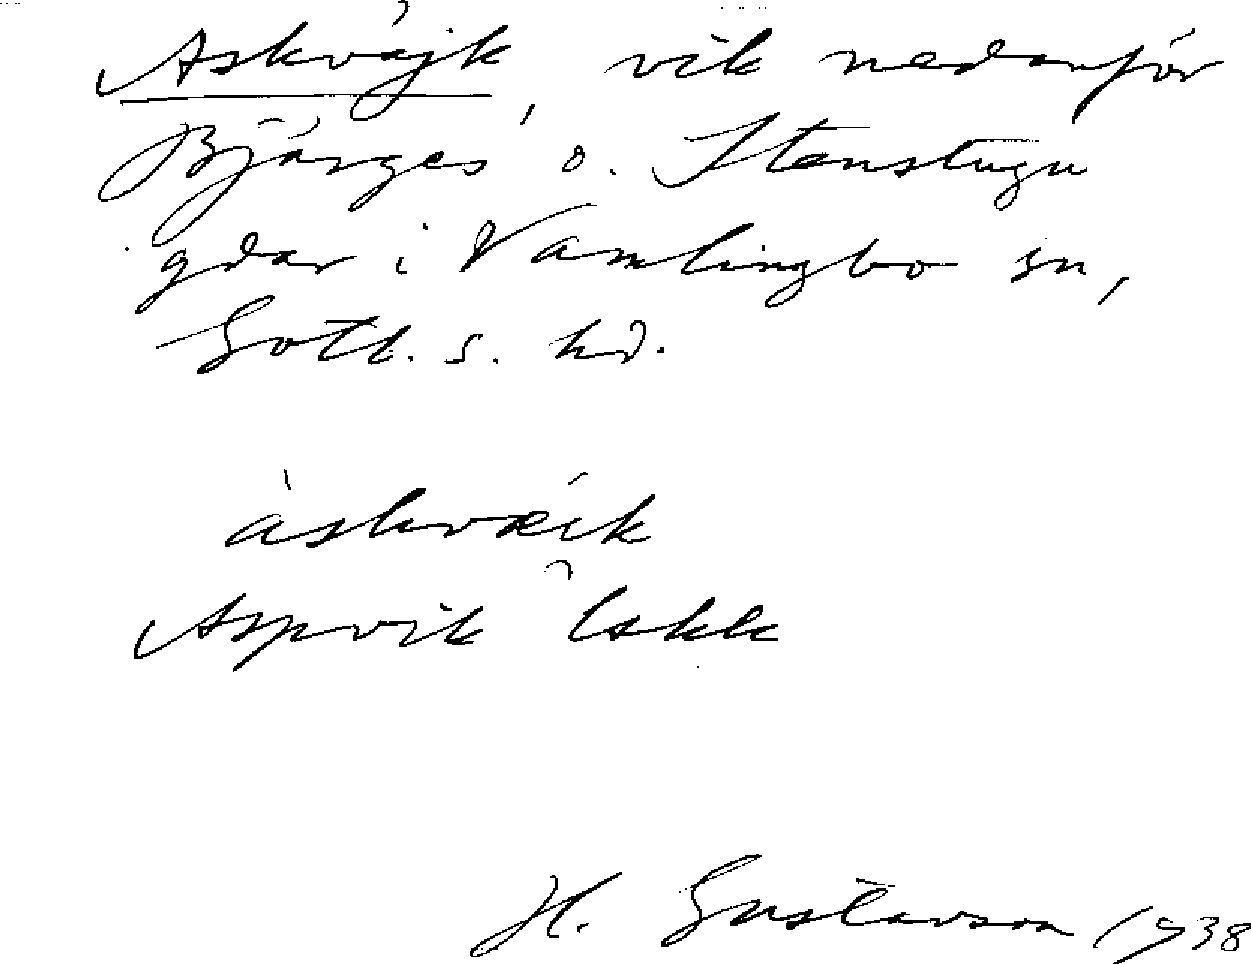 Askväjk, vik nedanför
Bjärges o. Stenstugu
gdar i Vamlingbo sn,
Gotl. s. hd.
àskvæík
Aspvik
H. Gustavson 1938